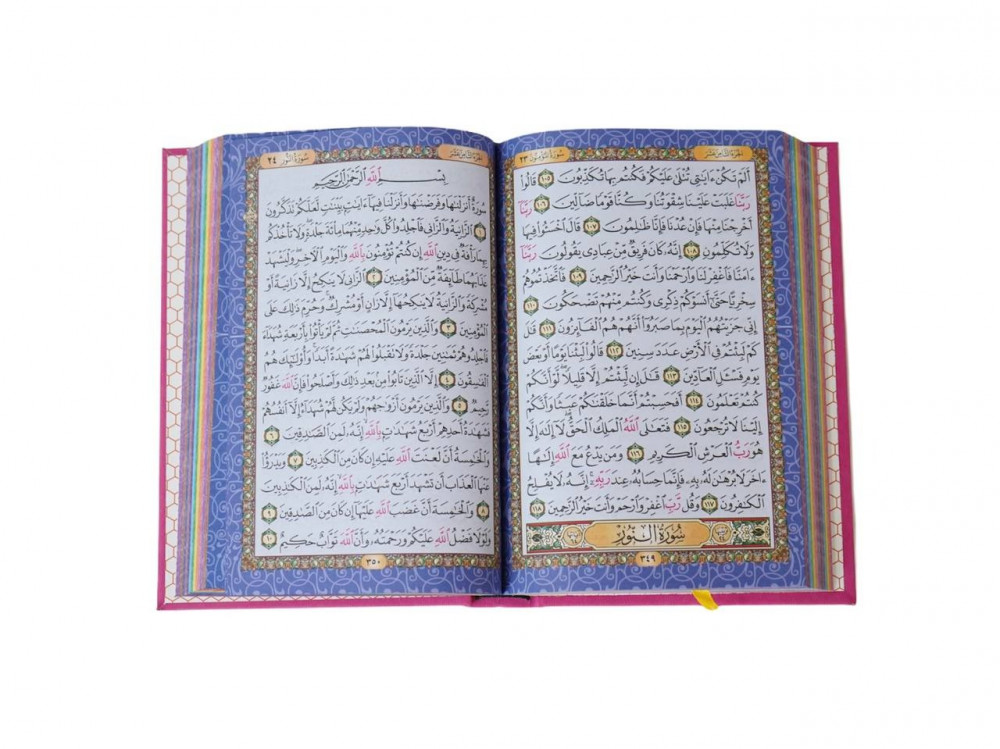 سُورَةُ المُؤۡمِنُون ٢٣
الجُزءُ الثَّامِنَ عَشَرَ
أَلَمۡ تَكُنۡ ءَايَٰتِي تُتۡلَىٰ عَلَيۡكُمۡ فَكُنتُم بِهَا تُكَذِّبُونَ ١٠٥ قَالُواْ
رَبَّنَا غَلَبَتۡ عَلَيۡنَا شِقۡوَتُنَا وَكُنَّا قَوۡمٗا ضَآلِّينَ ١٠٦ رَبَّنَآ
أَخۡرِجۡنَا مِنۡهَا فَإِنۡ عُدۡنَا فَإِنَّا ظَٰلِمُونَ ١٠٧ قَالَ ٱخۡسَـُٔواْ فِيهَا
وَلَا تُكَلِّمُونِ ١٠٨ إِنَّهُۥ كَانَ فَرِيقٞ مِّنۡ عِبَادِي يَقُولُونَ رَبَّنَآ
ءَامَنَّا فَٱغۡفِرۡ لَنَا وَٱرۡحَمۡنَا وَأَنتَ خَيۡرُ ٱلرَّٰحِمِينَ ١٠٩ فَٱتَّخَذۡتُمُوهُمۡ
سِخۡرِيًّا حَتَّىٰٓ أَنسَوۡكُمۡ ذِكۡرِي وَكُنتُم مِّنۡهُمۡ تَضۡحَكُونَ
١١٠ إِنِّي جَزَيۡتُهُمُ ٱلۡيَوۡمَ بِمَا صَبَرُوٓاْ أَنَّهُمۡ هُمُ ٱلۡفَآئِزُونَ ١١١ قَٰلَ
كَمۡ لَبِثۡتُمۡ فِي ٱلۡأَرۡضِ عَدَدَ سِنِينَ ١١٢ قَالُواْ لَبِثۡنَا يَوۡمًا أَوۡ بَعۡضَ
يَوۡمٖ فَسۡـَٔلِ ٱلۡعَآدِّينَ ١١٣ قَٰلَ إِن لَّبِثۡتُمۡ إِلَّا قَلِيلٗاۖ لَّوۡ أَنَّكُمۡ
كُنتُمۡ تَعۡلَمُونَ ١١٤ أَفَحَسِبۡتُمۡ أَنَّمَا خَلَقۡنَٰكُمۡ عَبَثٗا وَأَنَّكُمۡ
إِلَيۡنَا لَا تُرۡجَعُونَ ١١٥ فَتَعَٰلَى ٱللَّهُ ٱلۡمَلِكُ ٱلۡحَقُّۖ لَآ إِلَٰهَ إِلَّا
هُوَ رَبُّ ٱلۡعَرۡشِ ٱلۡكَرِيمِ ١١٦ وَمَن يَدۡعُ مَعَ ٱللَّهِ إِلَٰهًا
ءَاخَرَ لَا بُرۡهَٰنَ لَهُۥ بِهِۦ فَإِنَّمَا حِسَابُهُۥ عِندَ رَبِّهِۦٓۚ إِنَّهُۥ لَا يُفۡلِحُ
ٱلۡكَٰفِرُونَ ١١٧ وَقُل رَّبِّ ٱغۡفِرۡ وَٱرۡحَمۡ وَأَنتَ خَيۡرُ ٱلرَّٰحِمِينَ ١١٨
سُورَةُ النُّورِ
٣٤٩
سُورَةُ النُّور ٢٤
الجُزءُ الثَّامِنَ عَشَرَ
بِسۡمِ ٱللَّهِ ٱلرَّحۡمَٰنِ ٱلرَّحِيمِ
سُورَةٌ أَنزَلۡنَٰهَا وَفَرَضۡنَٰهَا وَأَنزَلۡنَا فِيهَآ ءَايَٰتِۭ بَيِّنَٰتٖ لَّعَلَّكُمۡ تَذَكَّرُونَ
١ ٱلزَّانِيَةُ وَٱلزَّانِي فَٱجۡلِدُواْ كُلَّ وَٰحِدٖ مِّنۡهُمَا مِاْئَةَ جَلۡدَةٖۖ وَلَا تَأۡخُذۡكُم
بِهِمَا رَأۡفَةٞ فِي دِينِ ٱللَّهِ إِن كُنتُمۡ تُؤۡمِنُونَ بِٱللَّهِ وَٱلۡيَوۡمِ ٱلۡأٓخِرِۖ وَلۡيَشۡهَدۡ
عَذَابَهُمَا طَآئِفَةٞ مِّنَ ٱلۡمُؤۡمِنِينَ ٢ ٱلزَّانِي لَا يَنكِحُ إِلَّا زَانِيَةً أَوۡ
مُشۡرِكَةٗ وَٱلزَّانِيَةُ لَا يَنكِحُهَآ إِلَّا زَانٍ أَوۡ مُشۡرِكٞۚ وَحُرِّمَ ذَٰلِكَ عَلَى
ٱلۡمُؤۡمِنِينَ ٣ وَٱلَّذِينَ يَرۡمُونَ ٱلۡمُحۡصَنَٰتِ ثُمَّ لَمۡ يَأۡتُواْ بِأَرۡبَعَةِ شُهَدَآءَ
فَٱجۡلِدُوهُمۡ ثَمَٰنِينَ جَلۡدَةٗ وَلَا تَقۡبَلُواْ لَهُمۡ شَهَٰدَةً أَبَدٗاۚ وَأُوْلَٰٓئِكَ هُمُ
ٱلۡفَٰسِقُونَ ٤ إِلَّا ٱلَّذِينَ تَابُواْ مِنۢ بَعۡدِ ذَٰلِكَ وَأَصۡلَحُواْ فَإِنَّ ٱللَّهَ غَفُورٞ
رَّحِيمٞ ٥ وَٱلَّذِينَ يَرۡمُونَ أَزۡوَٰجَهُمۡ وَلَمۡ يَكُن لَّهُمۡ شُهَدَآءُ إِلَّآ أَنفُسُهُمۡ
فَشَهَٰدَةُ أَحَدِهِمۡ أَرۡبَعُ شَهَٰدَٰتِۭ بِٱللَّهِ إِنَّهُۥ لَمِنَ ٱلصَّٰدِقِينَ ٦
وَٱلۡخَٰمِسَةُ أَنَّ لَعۡنَتَ ٱللَّهِ عَلَيۡهِ إِن كَانَ مِنَ ٱلۡكَٰذِبِينَ ٧ وَيَدۡرَؤُاْ
عَنۡهَا ٱلۡعَذَابَ أَن تَشۡهَدَ أَرۡبَعَ شَهَٰدَٰتِۭ بِٱللَّهِ إِنَّهُۥ لَمِنَ ٱلۡكَٰذِبِينَ
٨ وَٱلۡخَٰمِسَةَ أَنَّ غَضَبَ ٱللَّهِ عَلَيۡهَآ إِن كَانَ مِنَ ٱلصَّٰدِقِينَ ٩
وَلَوۡلَا فَضۡلُ ٱللَّهِ عَلَيۡكُمۡ وَرَحۡمَتُهُۥ وَأَنَّ ٱللَّهَ تَوَّابٌ حَكِيمٌ ١٠
٣٥٠